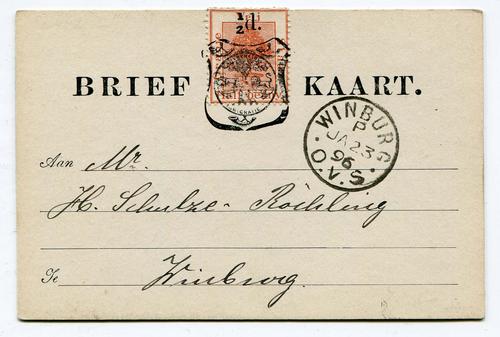 ½d.
BRIEF KAART.
WINBURG
P
JA 23
96
O.V.S.
Aan Mr.
H. Schultze-Röchling
Te Winburg.